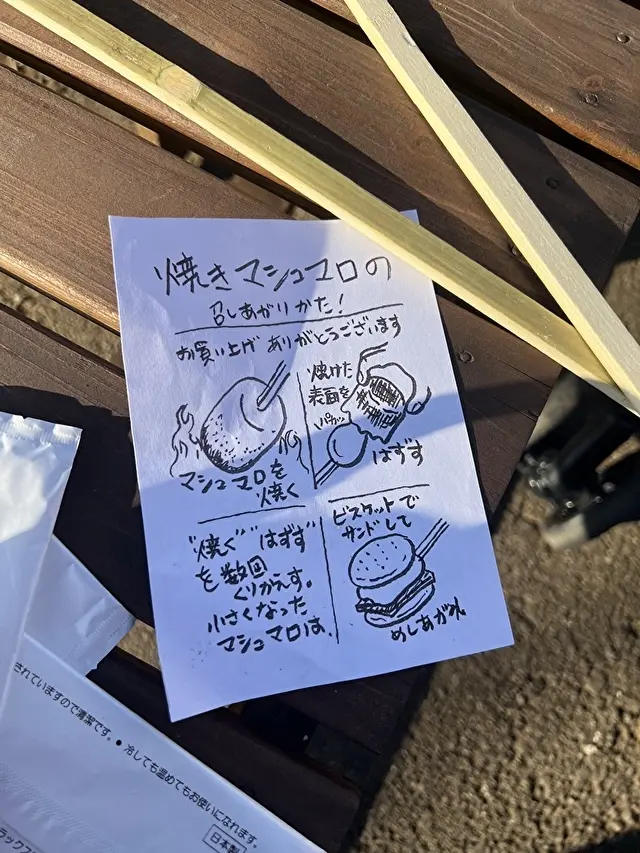 焼きマシュマロの
召しあがりかた!
お買い上げ ありがとうございます
マシュマロを
焼く
焼けた
表面を
パカッ
はずす
"焼く" "はずす"
を数回
くりかえす。
小さくなった
マシュマロは、
ビスケットで
サンドして
めしあがれ
されていますので清潔です。●冷しても温めてもお使いになれます。
日本製
ラックス